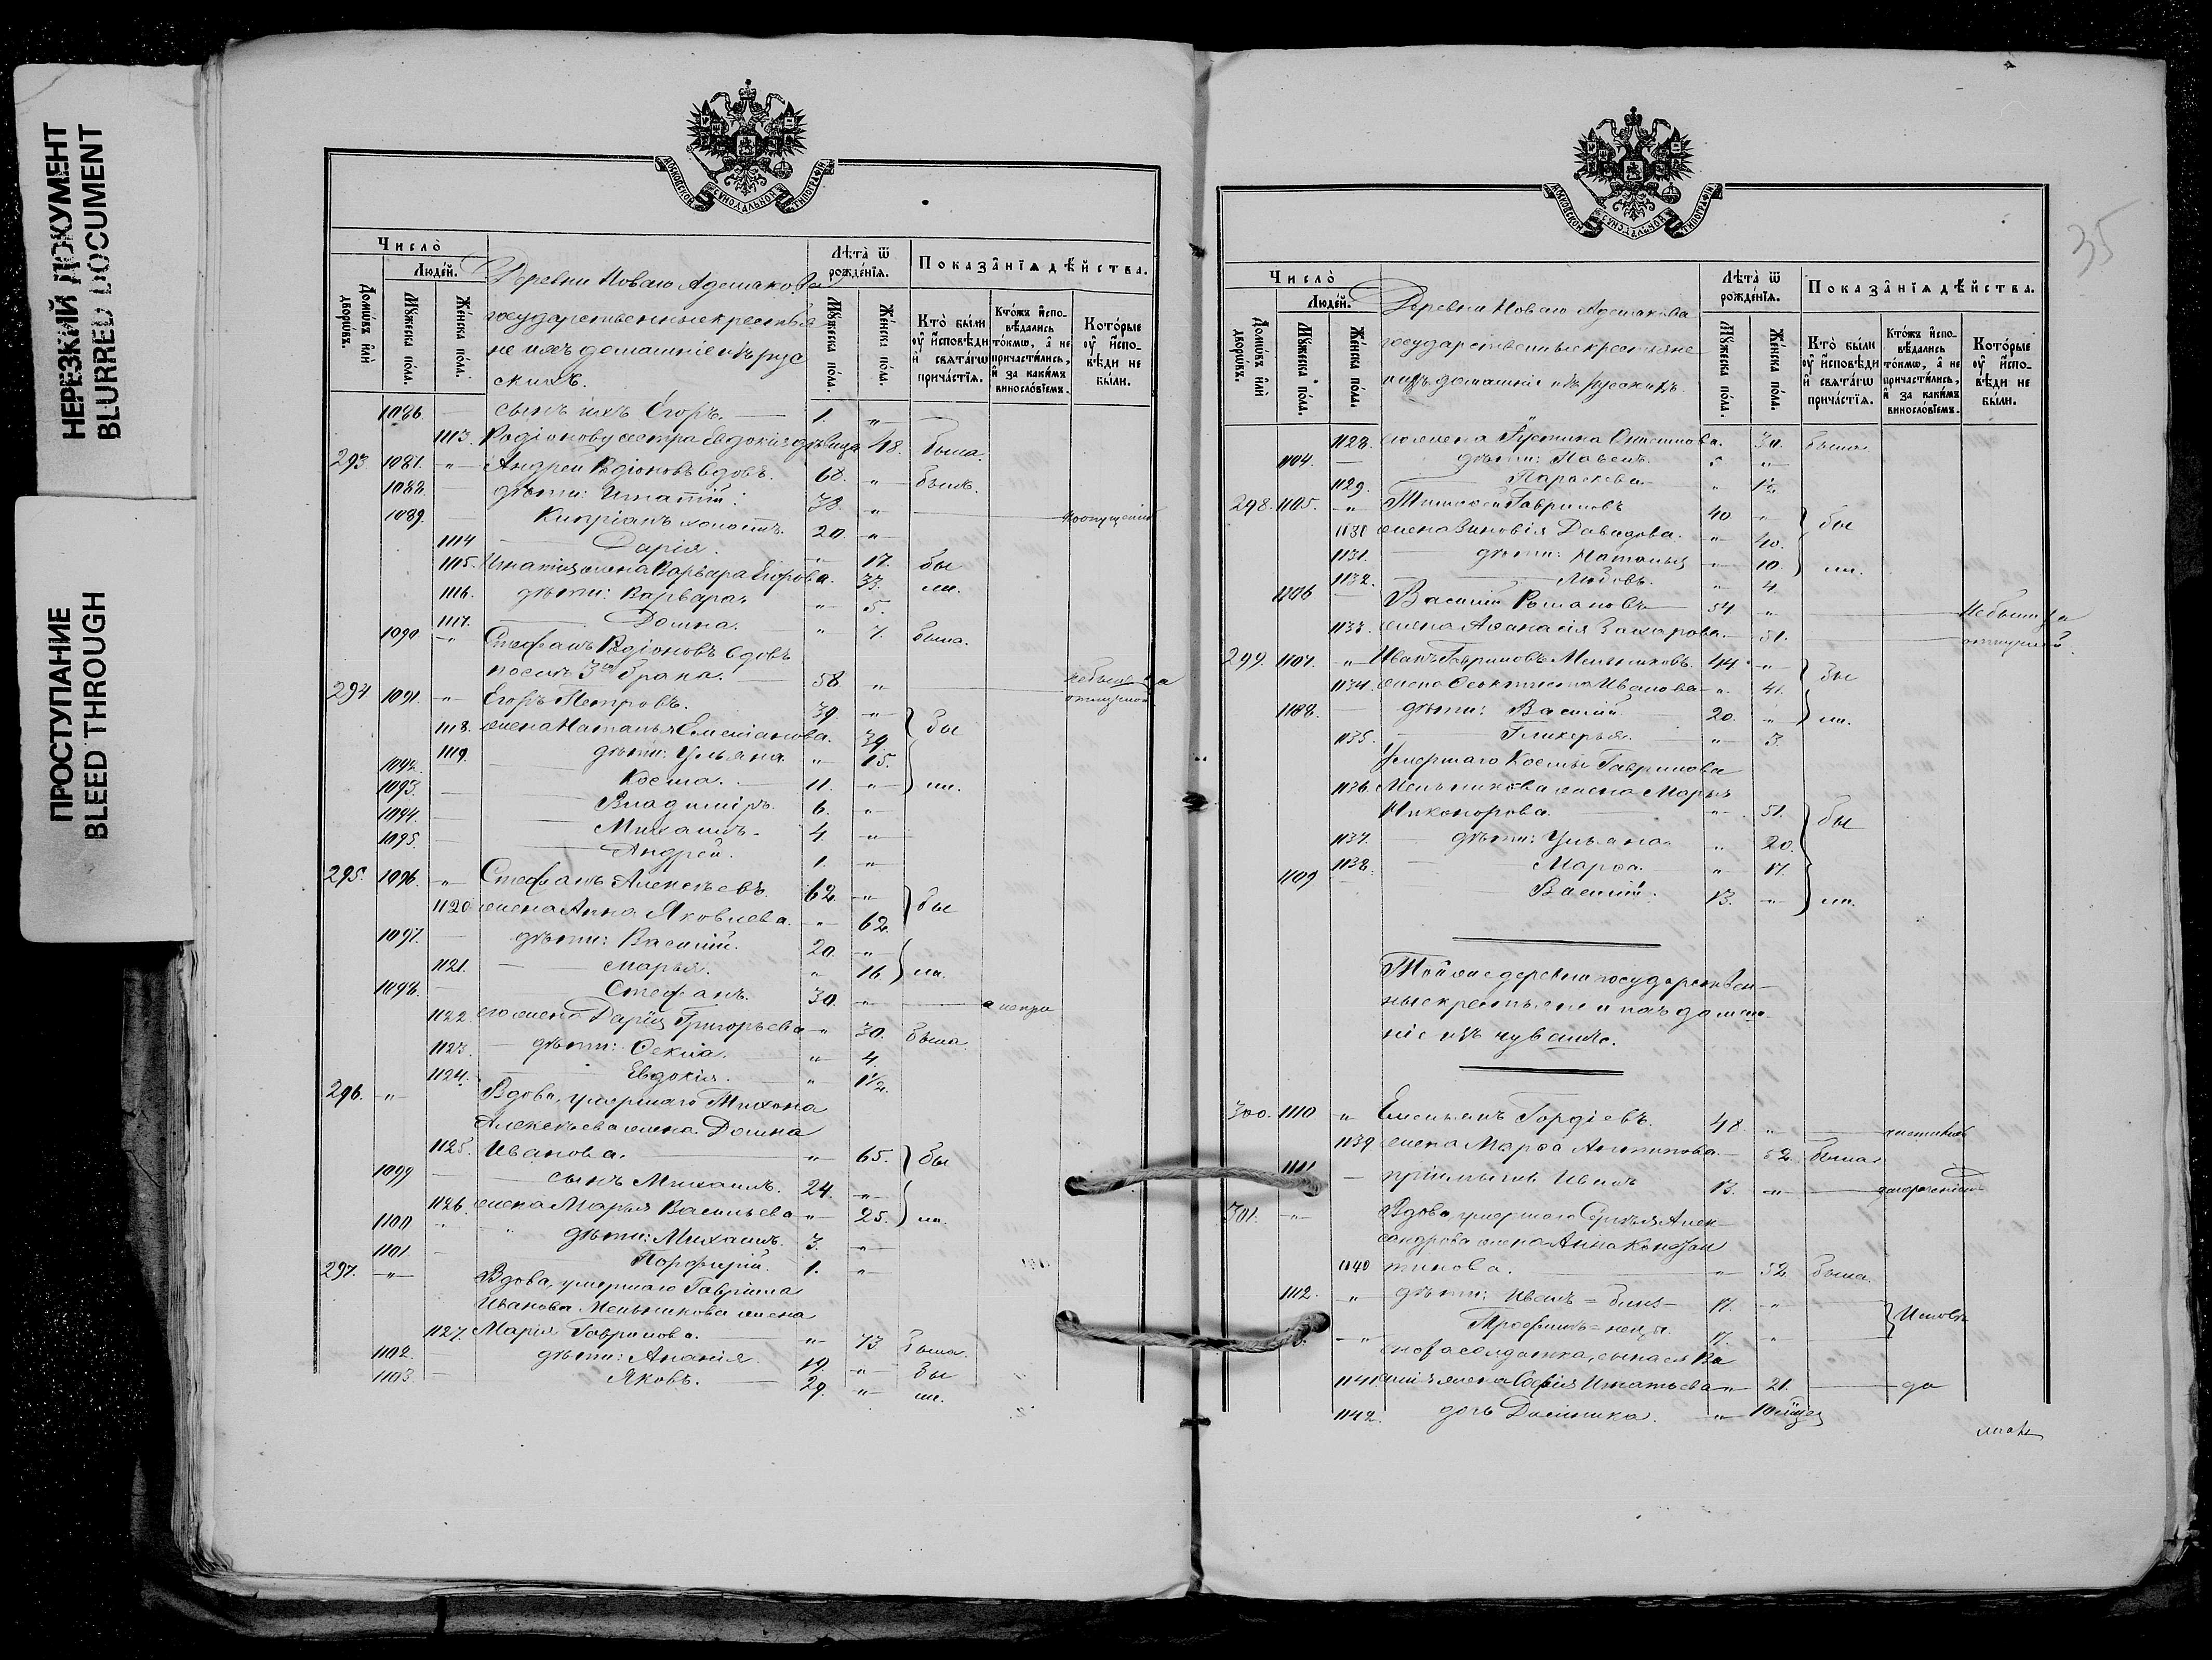 НЕРЕЗКИЙ ДОКУМЕНТ
BLURRED DOCUMENT
ПРОСТУПАНИЕ
BLEED THROUGH
Число̀
Людей.
Домѡвъ или дворѡвъ.
Мужеска пола.
Женска пола.
Деревни Новаго Адешкова
государственные крестья
не ихъ домашніе изъ рус
скихъ.
Лѣта ѿ рожденїѧ.
Мужеска пола.
Женска пола.
Показанїѧ дѣйства.
Кто были оу исповѣди и свѧтагѡ причастїѧ.
Ктожъ исповѣдались токмѡ, а не причастились, и за какимъ винословїемъ.
Которые оу исповѣди не были.
1086. — сынъ ихъ Егоръ. — 1. "
1113. Родіонову сестра Евдокія дѣвица 48. была.
293 1087. " Андрей Родіоновъ вдовъ. 68. " былъ.
1088. дѣти: Игнатій: 38. "
1089. Кипріанъ холостъ. 20. "
1114 Дарія. " 17. бы
1115. Игнатія жена Варвара Егорова. 33. ли.
1116. дѣти: Варвара " 5.
1117. Домна. " 7. была.
1090 " Стефанъ Родіоновъ вдовъ
послѣ 3го брака. 58. " не былъ за
отлучкой
294 1091. " Егоръ Петровъ. 39 " бы
1118. жена Наталья Емеліанова. 39.
1119. дѣти: Ульяна " 15.
1092. Косма. 11. " ли.
1093. Владиміръ. 6. "
1094. Михаилъ. 4. "
1095. Андрей. 1. "
295. 1096. " Стефанъ Алексѣевъ. 62. " бы
1120 жена Анна Яковлева. " 62.
1097. дѣти: Василій. 20. "
1121. Марья. " 16 ли.
1098. Стефанъ. 30. "
1122. его жена Дарія Григорьева " 30. была.
1123. дѣти: Ѳекла. " 4.
1124. Евдокія. " 1½.
296. " Вдова, умершаго Тихона
Алексѣева жена Домна
1125. Иванова. " 65. бы
1099 сынъ Михаилъ. 24. "
1126. жена Марья Васильева " 25. ли.
1100 " дѣти: Михаилъ. 3. "
1101. Порфирій. 1. "
297. " Вдова, умершаго Гавріила
Иванова Мельникова жена
1127. Марія Гаврилова. " 73 была.
1102. дѣти: Ананія. 19. " бы
1103. Яковъ. 29. " ли.
35
Число̀
Людей.
Домѡвъ или дворѡвъ.
Мужеска пола.
Женска пола.
Деревни Новаго Адешкова
государственные крестьяне
ихъ домашніе изъ русскихъ.
Лѣта ѿ рожденїѧ.
Мужеска пола.
Женска пола.
Показанїѧ дѣйства.
Кто были оу исповѣди и свѧтагѡ причастїѧ.
Ктожъ исповѣдались токмѡ, а не причастились, и за какимъ винословїемъ.
Которые оу исповѣди не были.
1128. жена Устина 30. была
1104. — дѣти: Павелъ. 5 "
1129. Параскева. " 1½
298. 1105. " Тимоѳей Гавриловъ 40 " бы
1130 жена Зиновія Давидова. " 40.
1131. дѣти: Наталья " 10. ли.
1132. Любовь. " 4.
1106 — Василій Романовъ 54 " Не были за
1133. жена Аѳанасія Захарова. 51. отлучкой.
299. 1107. " Иванъ Гавриловъ Мельниковъ. 44. " бы
1134. жена Ѳеоктиста Иванова " 41.
1108. — дѣти: Василій 20. " ли.
1135. Гликерья. " 3.
Умершаго Космы Гаврилова
1136. Мельникова жена Марья
Никонорова. " 51. бы
1137. дѣти: Ульяна " 20.
1138. Марѳа. " 17.
1109 Василій. 13. " ли.
Той же деревни государствен-
ные крестьяне и ихъ домаш-
ніе изъ чувашъ.
300. 1110 " Емельянъ Гордіевъ. 48. "
1139 жена Марѳа Антипова. 52. была
1111. — пріемышъ Иванъ 13. "
301. " Вдова, умершаго Сергѣя Алек-
сандрова жена Анна Констан
1140 тинова. " 52. была.
1112. " дѣти: Иванъ 17. "
Трофимъ 17. "
сноха солдатка, сына ея Ва
1141. силія жена Софія Игнатьева " 21. да
1142. дочь Домника. "